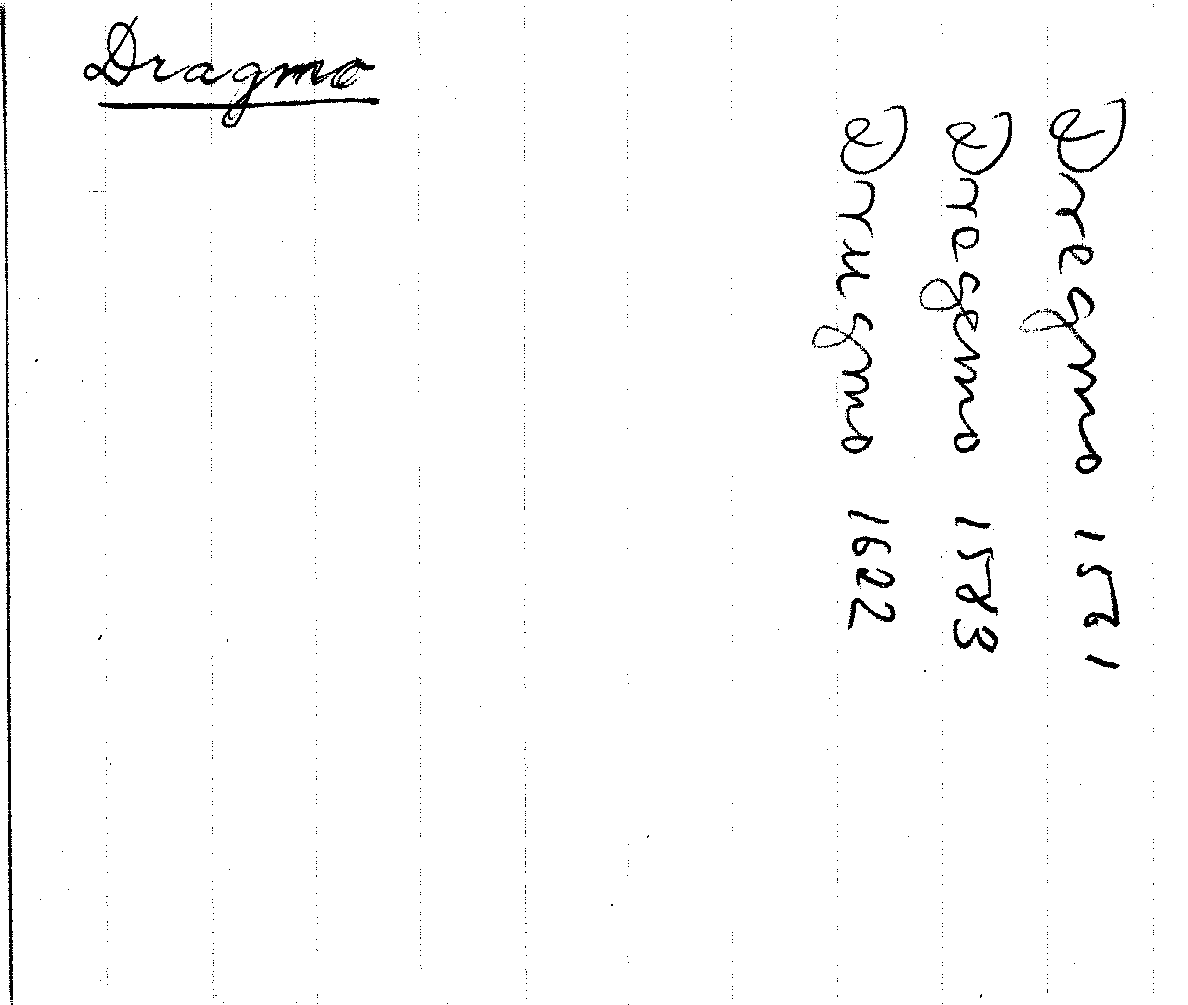 Dragmo
Dregmo 1521
Dregemo 1583
Drugmo 1622